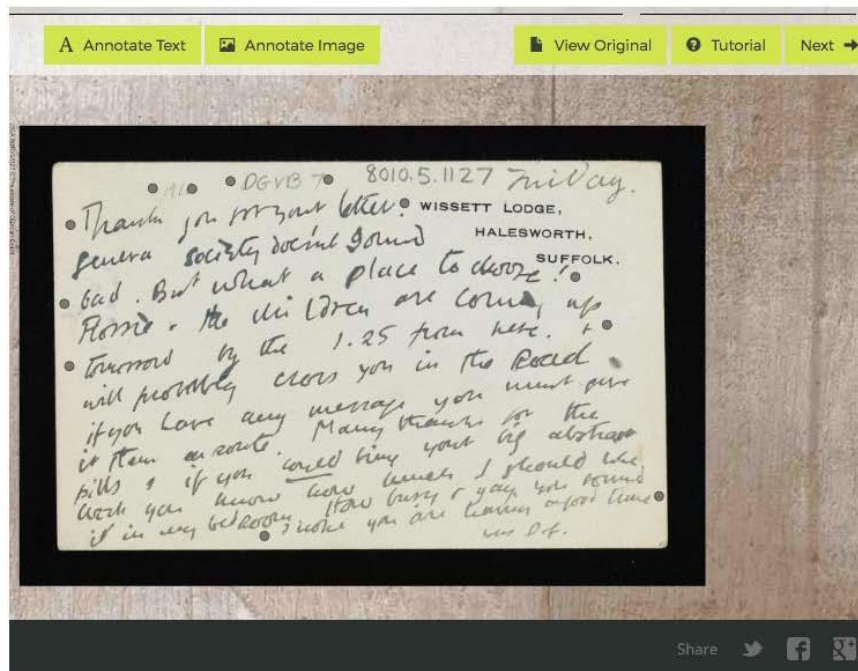 A Annotate Text
Annotate Image
View Original
Tutorial
Next
DGVB 7
8010.5.1127 Friday.
WISSETT LODGE,
HALESWORTH,
SUFFOLK.
Thank you for your letter.
general society doesn't sound
bad. But what a place to choose!
Flossie & the children are coming up
tomorrow by the 1.25 from here. &
will probably cross you in the Road
if you have any message you must give
it them en route. Many thanks for the
pills & if you could bring your big abstract
work you know how much I should like
it in my bedroom How busy & you sound
I hope you are having a good time
Share